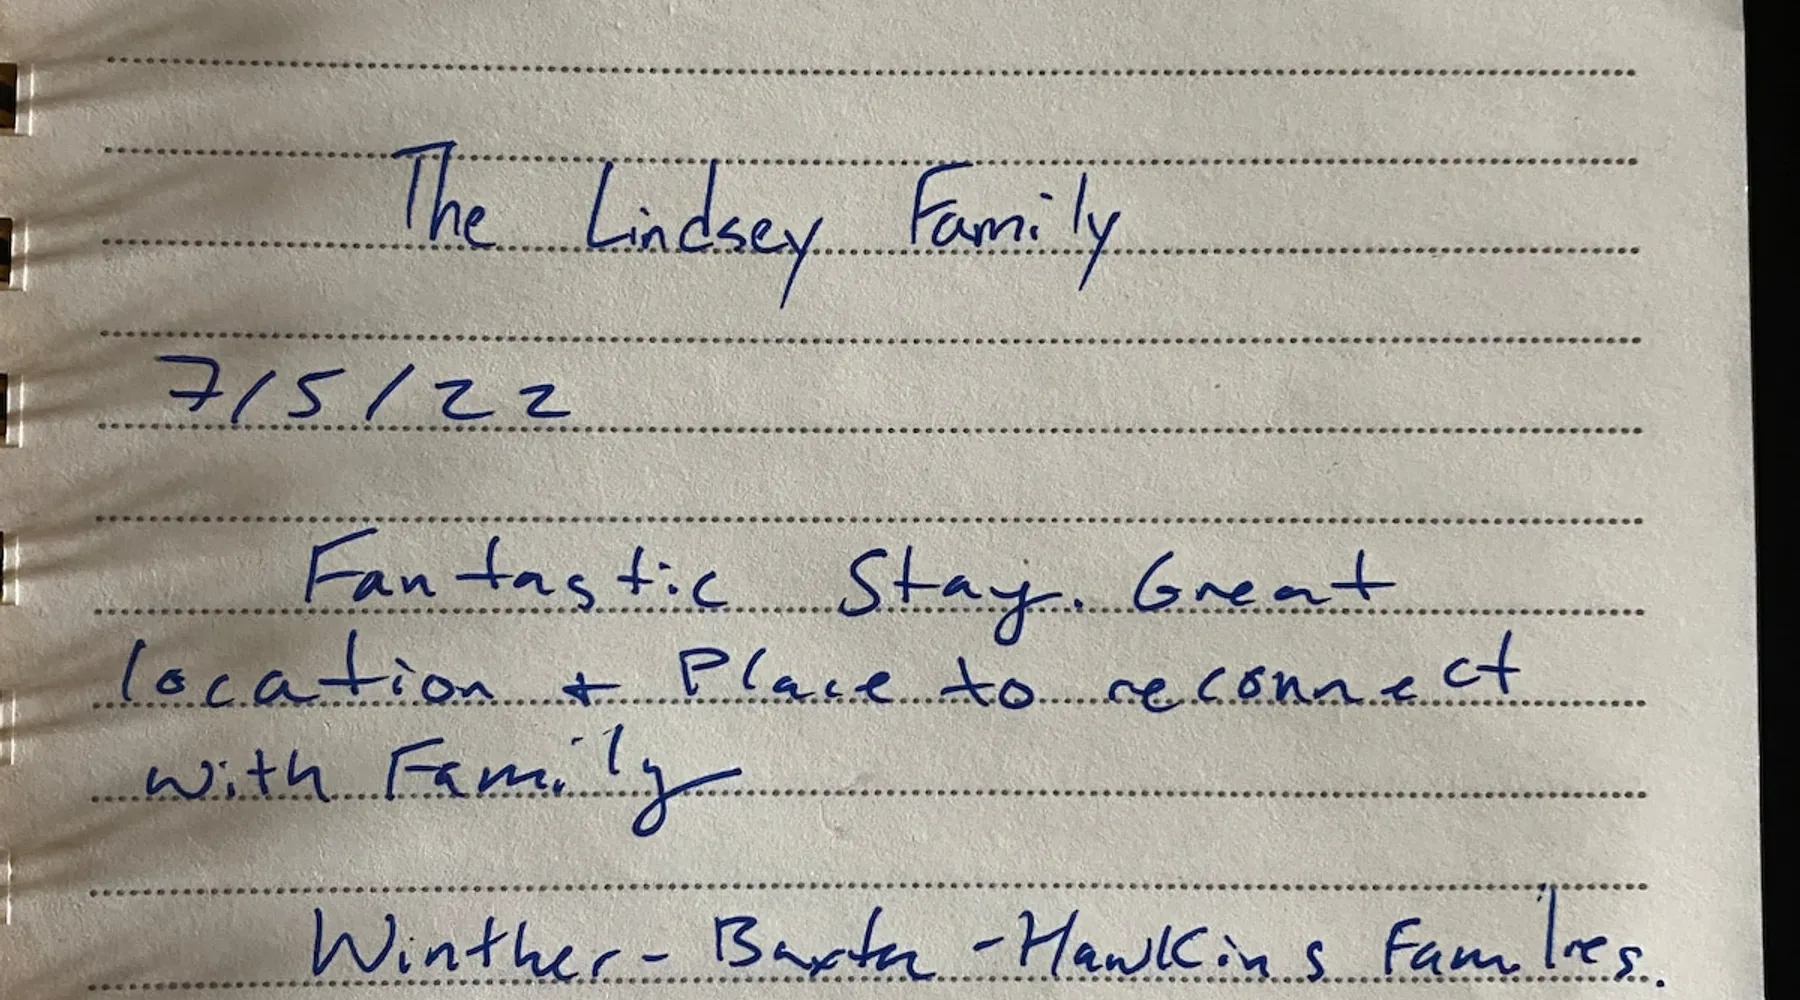 The Lindsey Family
7/5/22
Fantastic Stay. Great
location + Place to reconnect
with Family
Winther - Baxter - Hawkins Families.